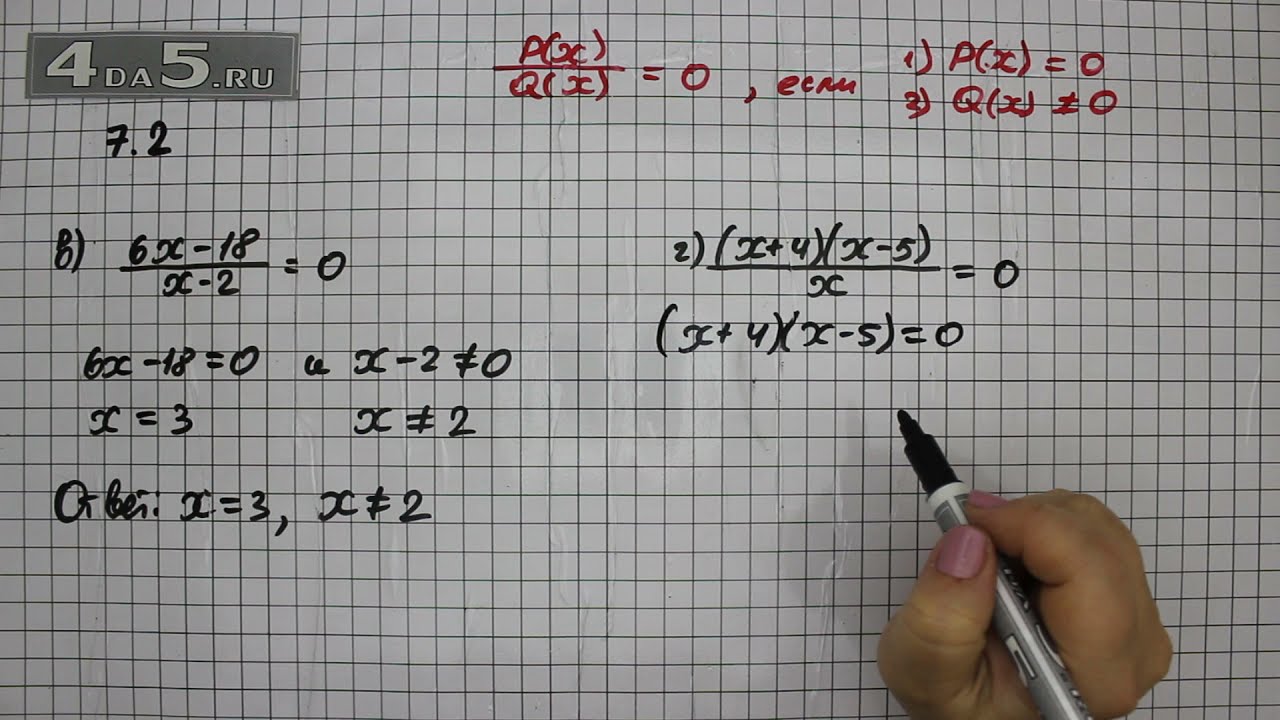 4DA5.RU
P(x)/Q(x) = 0, если
1) P(x) = 0
2) Q(x) ≠ 0
7.2
в) (6x-18)/(x-2) = 0
6x-18=0 и x-2≠0
x = 3 x ≠ 2
Ответ: x=3, x≠2
г) ((x+4)(x-5))/x = 0
(x+4)(x-5)=0